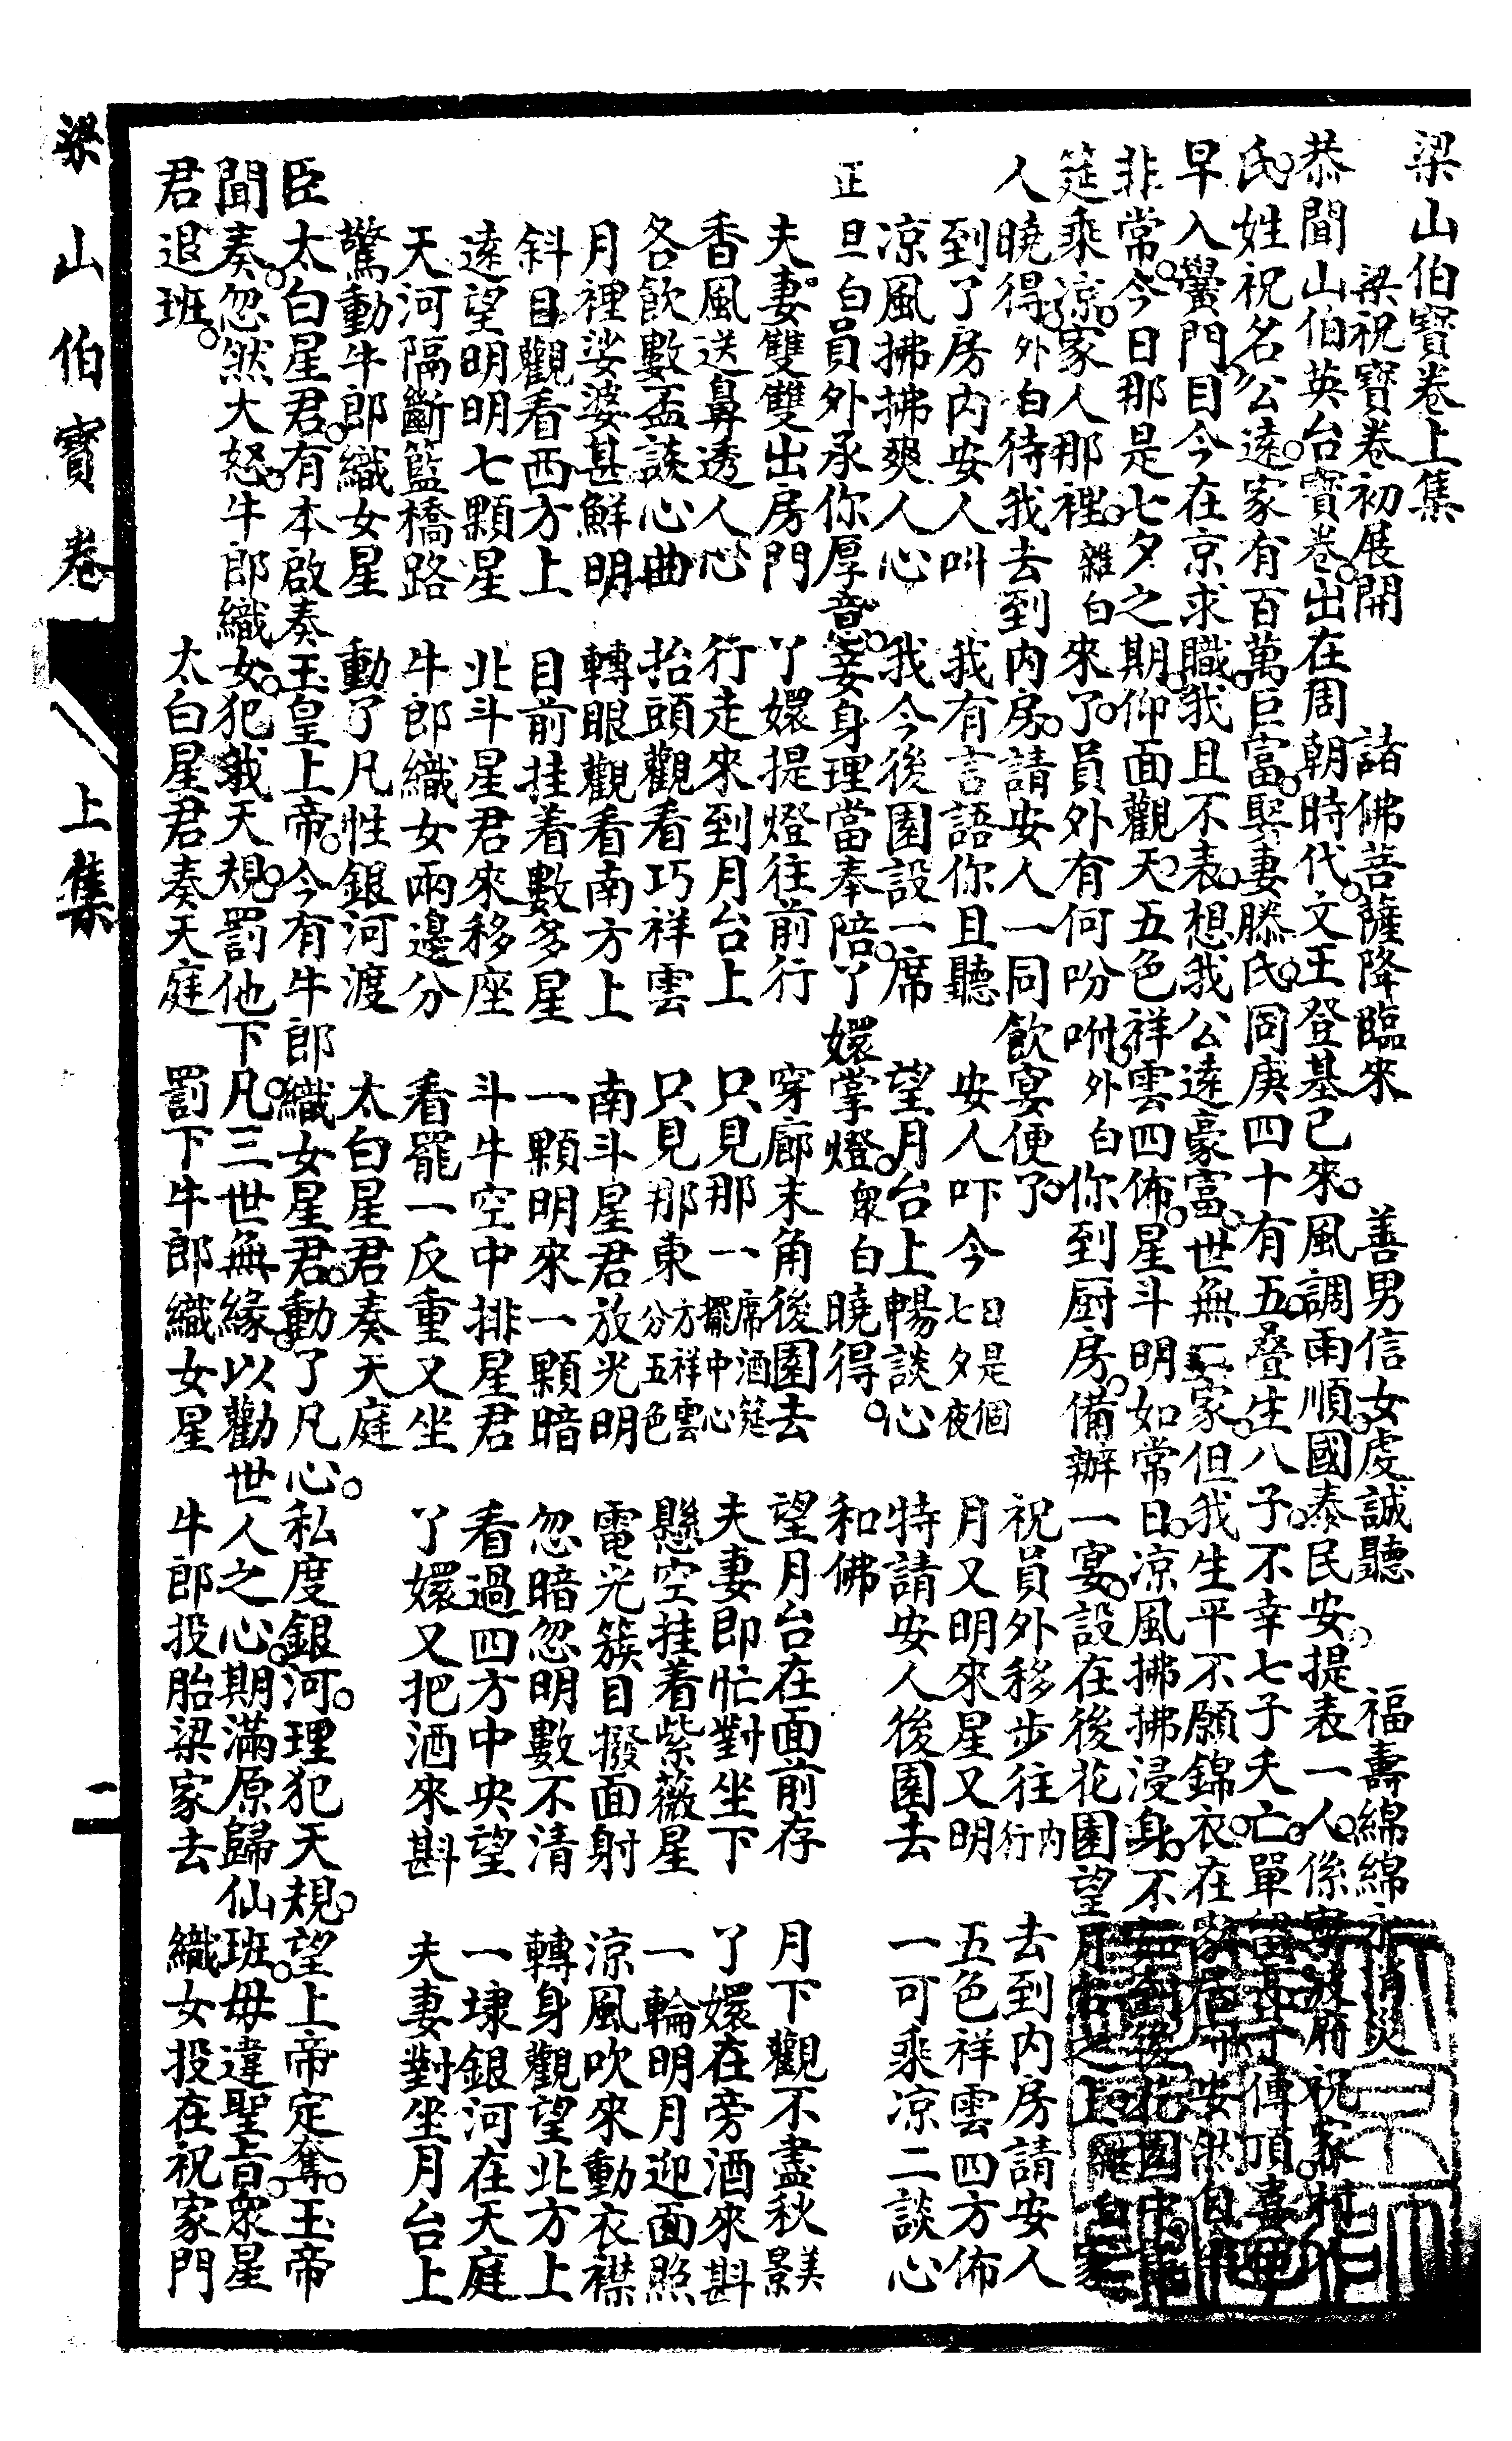 梁山伯寶卷上集
梁祝寶卷初展開　諸佛菩薩降臨來　善男信女虔誠聽　福壽綿綿永消災
恭聞山伯英台寶卷。出在周朝時代。文王登基已來。風調雨順。國泰民安。提表一人。係寧波府祝家村
氏。姓祝名公遠。家有百萬巨富。娶妻滕氏。同庚四十有五。叠生八子。不幸七子夭亡。單留傳頂
早入黌門。目今在京求職。我且不表。想我公遠豪富。世無二家。但我生平不願錦衣。在安然自
非常。今日那是七夕之期。仰面觀天。五色祥雲四佈。星斗明如常日。凉風拂拂浸身。不如到後花園中
筵乘凉。家人那裡。雜白來了。員外有何吩咐。外白你到厨房。備辦一宴。設在後花園望月台之上。雜白家
人曉得。外白待我去到内房。請安人一同飲宴便了。
祝員外移步往内行　去到内房請安人
到了房内安人叫　我有言語你且聽　安人吓今日是個七夕夜　月又明來星又明　五色祥雲四方佈
凉風拂拂爽人心　我今後園設一席　望月台上暢談心　特請安人後園去　一可乘凉二談心
正旦白員外承你厚意。妾身理當奉陪。丫嬛掌燈。衆白曉得。　和佛
夫妻雙雙出房門　丫嬛提燈往前行　穿廊末角後園去　望月台在面前存　月下觀不盡秋景美
香風送鼻透人心　行走來到月台上　只見那一席酒筵擺中心　夫妻即忙對坐下　丫嬛在旁酒來斟
各飲數盃談心曲　抬頭觀看巧祥雲　只見那東方祥雲分五色　懸空挂着紫薇星　一輪明月迎面照
月裡娑婆甚鮮明　轉眼觀看南方上　南斗星君放光明　電光簇目撥面射　凉風吹來動衣襟
斜目觀看西方上　目前挂着數多星　一顆明來一顆暗　忽暗忽明數不清　轉身觀望北方上
遠望明明七顆星　北斗星君來移座　斗牛空中排星君　看過四方中央望　一埭銀河在天庭
天河隔斷籃橋路　牛郎織女兩邊分　看罷一反重又坐　丫嬛又把酒來斟　夫妻對坐月台上
驚動牛郎織女星　動了凡性銀河渡　太白星君奏天庭
臣太白星君。有本啟奏玉皇上帝。今有牛郎織女星君。動了凡心。私度銀河。理犯天規。望上帝定奪。玉帝
聞奏。忽然大怒。牛郎織女。犯我天規。罰他下凡。三世無緣。以勸世人之心。期滿原歸仙班。毋違聖旨。衆星
君退班。
太白星君奏天庭　罰下牛郎織女星　牛郎投胎梁家去　織女投在祝家門
梁山伯寶卷　上集　二